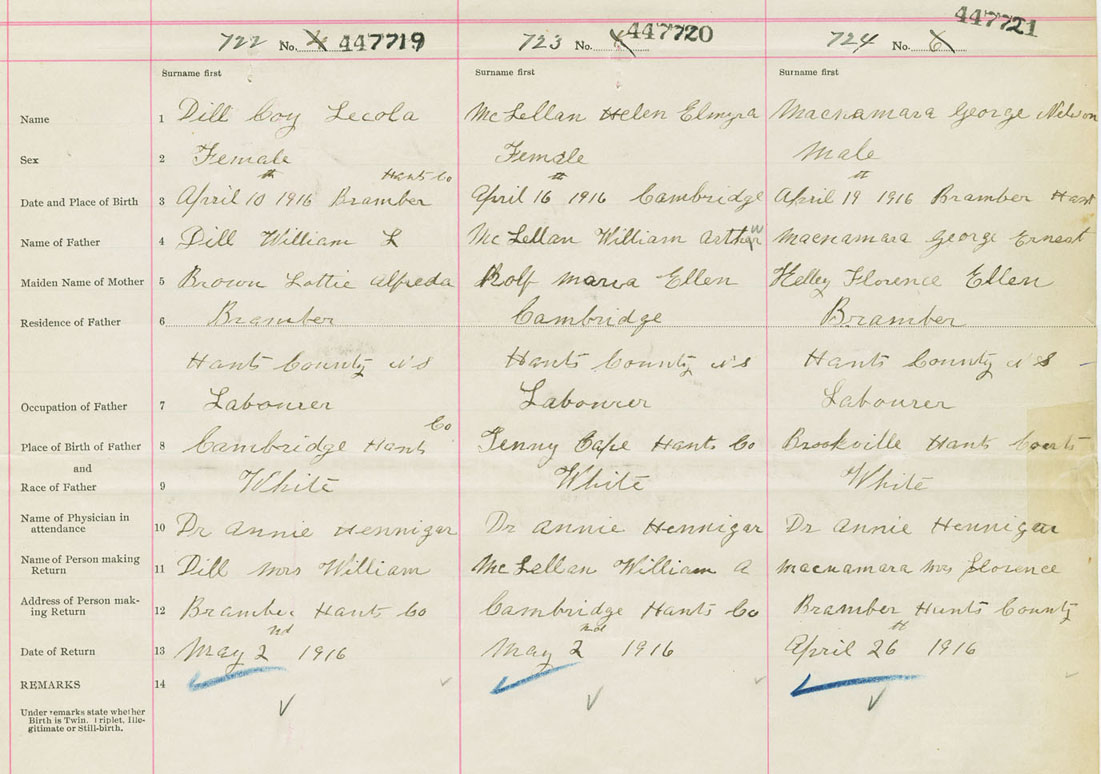 722 No. 4 447719 723 No. 447720 724 No. 6 447721
Surname first Surname first Surname first
Name 1 Dill Coy Lecola McLellan Helen Elmyra Macnamara George Nelson
Sex 2 Female Female Male
Date and Place of Birth 3 April 10th 1916 Bramber Hants Co April 16th 1916 Cambridge April 19th 1916 Bramber Hant
Name of Father 4 Dill William L McLellan William Arthur Macnamara George Ernest
Maiden Name of Mother 5 Brown Lottie Alfreda Rolf Maria Ellen Kelley Florence Ellen
Residence of Father 6 Bramber Cambridge Bramber
Hants County NS Hants County NS Hants County NS
Occupation of Father 7 Labourer Labourer Labourer
Place of Birth of Father 8 Cambridge Hants Co Tenny Cape Hants Co Brookville Hants
and
Race of Father 9 White White White
Name of Physician in
attendance 10 Dr Annie Hennigar Dr Annie Hennigar Dr Annie Hennigar
Name of Person making
Return 11 Dill Mrs William McLellan William A Macnamara Mrs Florence
Address of Person mak-
ing Return 12 Bramber Hants Co Cambridge Hants Co Bramber Hants County
Date of Return 13 May 2nd 1916 May 2nd 1916 April 26th 1916
REMARKS 14
Under remarks state whether
Birth is Twin. Triplet, Ille-
gitimate or Still-birth.